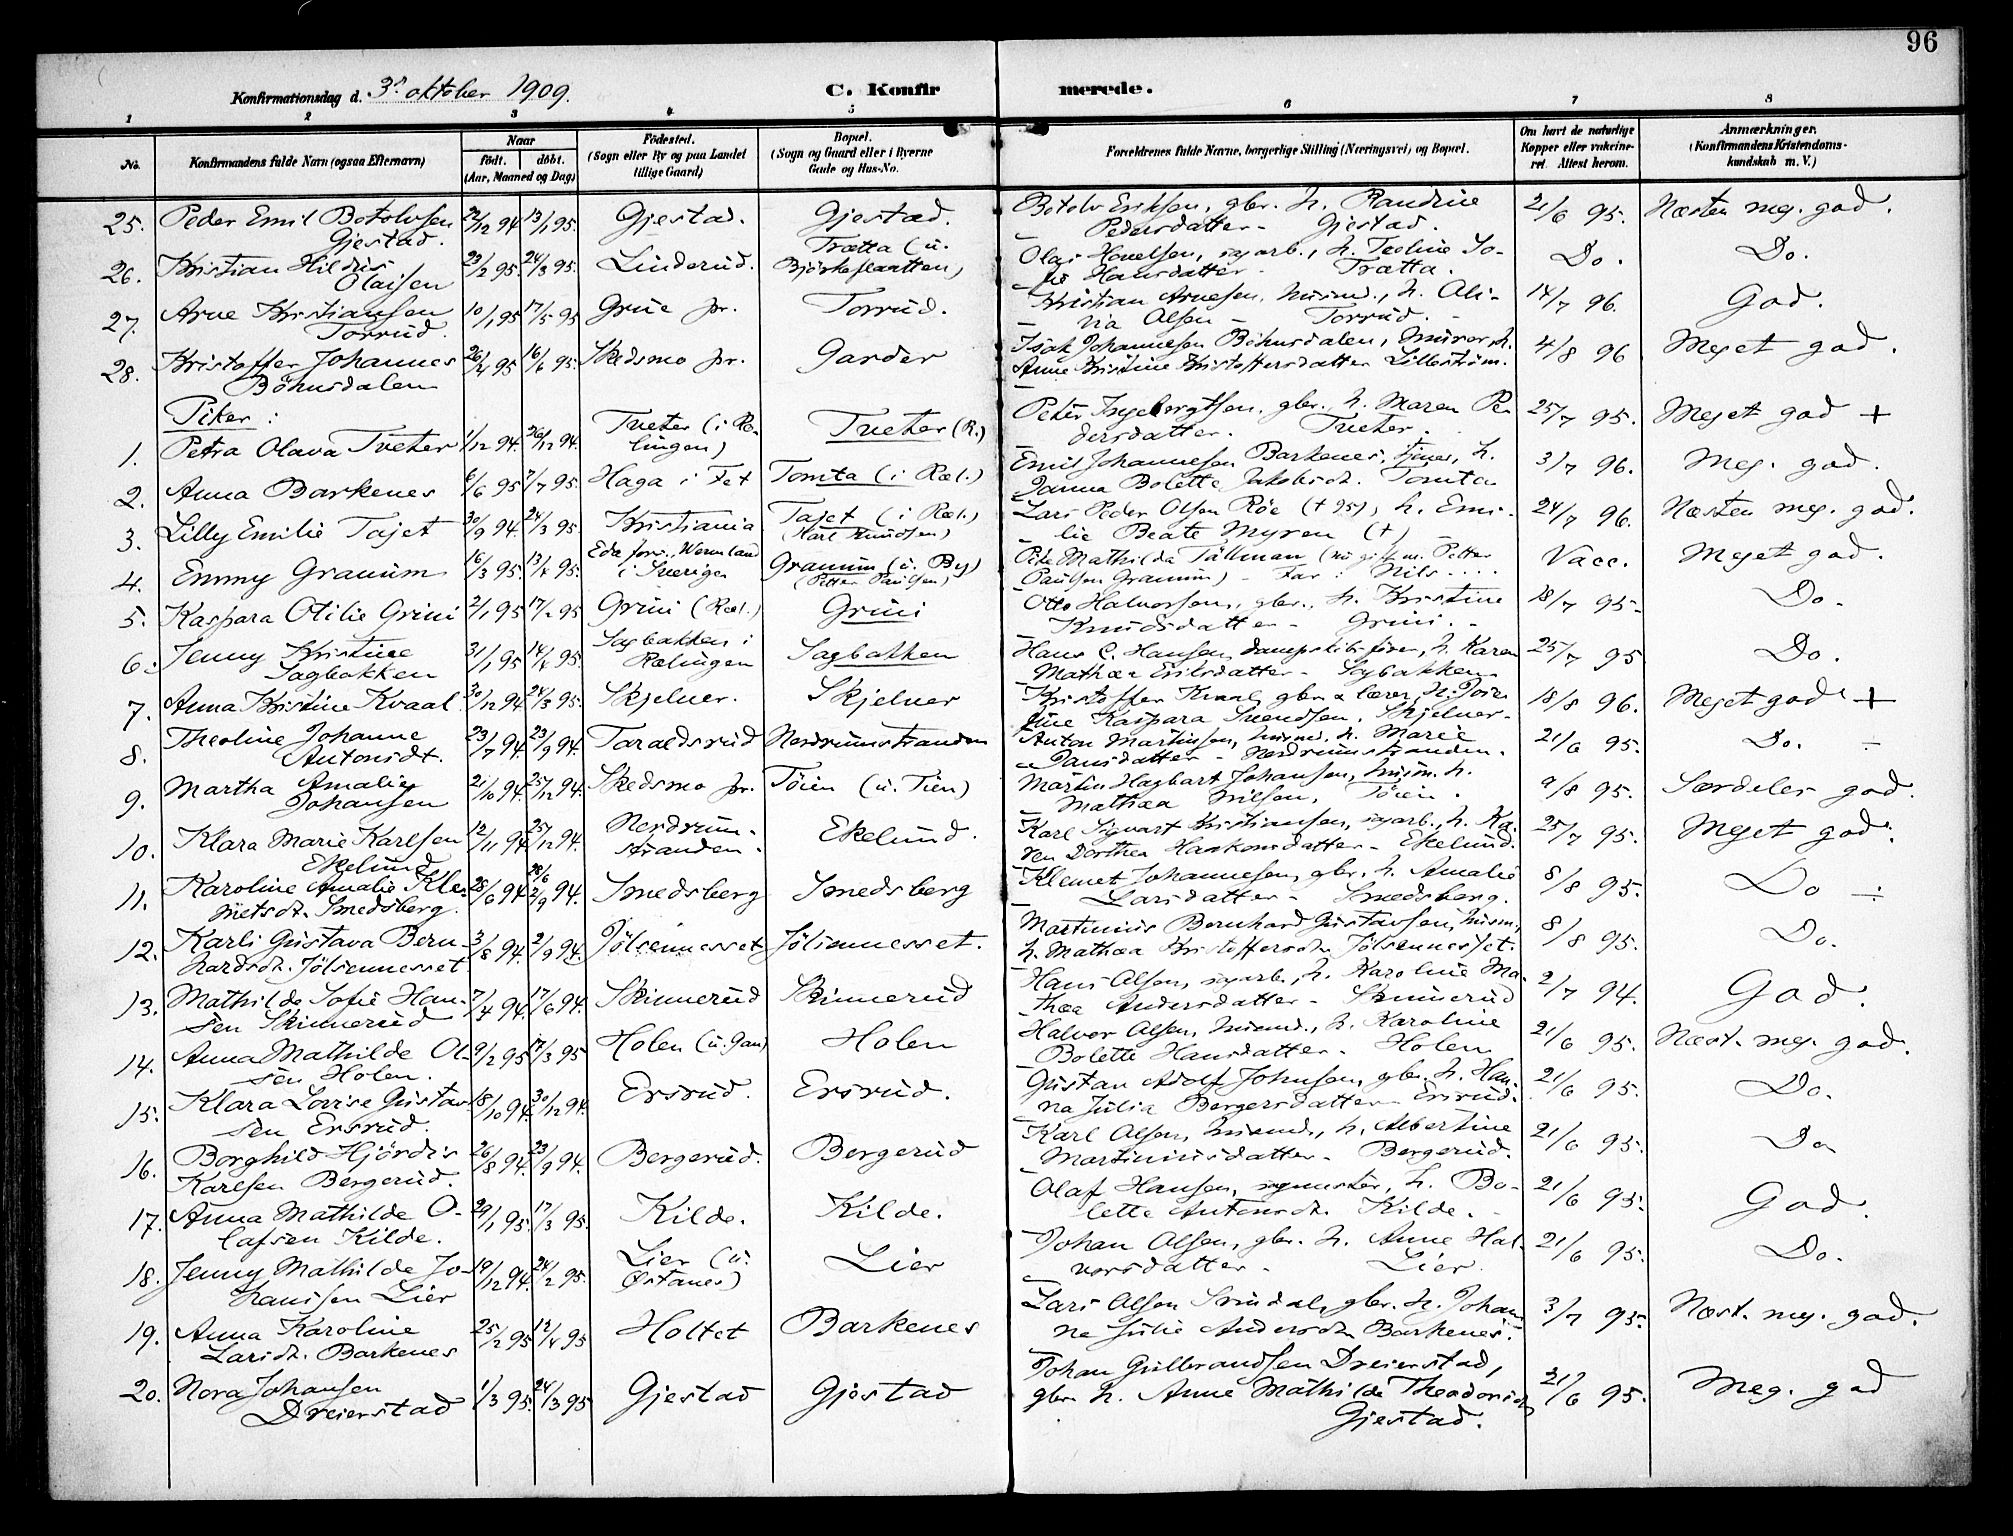 96
Konfirmationsdag d. 3. oktober 1909.
C. Konfirmerede.
1 2 3 4 5 6 7 8
No.
Konfirmandens fulde Navn (ogsaa Efternavn)
Naar
født. døbt.
(Aar, Maaned og Dag)
Fødested.
(Sogn eller By og paa Landet
tillige Gaard)
Bopæl.
(Sogn og Gaard eller i Byerne
Gade og Hus-No.
Forældrenes fulde Navne, borgerlige Stilling (Næringsvei) og Bopæl.
Om havt de naturlige
Kopper eller vakcine-
ret. Attest herom.
Anmærkninger.
(Konfirmandens Kristendoms-
kundskab m. V.)
25. Peder Emil Botolvsen 22/12 94 13/1 95. Gjestad. Gjestad. Botolv Eriksen, gbr. h. Randine 21/6 95. Næsten meg. god.
Gjestad. Pedersdatter - Gjestad.
26. Kristian Hildris 23/2 95. 24/3 95. Linderud. Trætta (u. Olai Houelsen, sagarb., h. Teoline So- Do. Do.
Olaisen Björkeslaatten) fie Hansdatter - Trætta.
27. Arne Kristiansen 10/1 95 17/5 95 Grue pr. Torrud. Kristian Arnesen, husmd., h. Oli- 14/7 96. God.
Torrud. via Olsen - Torrud.
28. Kristoffer Johannes 26/4 95 16/6 95. Skedsmo pr. Garder Isak Johannesen Böhnsdalen, murer, h. 4/8 96 Meget god.
Böhnsdalen Anne Kristine Kristoffersdatter Lilleström.
Piker:
1. Petra Olava Tveter 1/12 94. 26/12 94. Tveter (i Ræ- Tveter (R.) Peter Ingebrigtsen, gbr. h. Maren Pe- 25/7 95. Meget god +
lingen) dersdatter. Tveter.
2. Anna Barkenes 6/6 95 7/7 95. Haga i Fet Tomta (i Ræl.) Emil Johannesen Barkenes, tjener, h. 3/7 96. Meg. god.
Janna Bolette Jakobsdt. Tomta
3. Lilly Emilie Tajet 30/9 94. 24/3 95. Kristiania Tajet (i Ræl.) Lars Peder Olsen Röe († 95), h. Emi- 24/7 96. Næsten meg. god.
(Karl Knudsen) lie Beate Myren (†)
4. Emmy Granum 16/3 95. 13/4 95. Eda fors., Wermland Granum (u. By) Mathilda Tällman (nu gift m. Petter Vacc. Meget god.
i Sverige (Petter Paulsen) Paulsen Granum) - Far: Nils ....
5. Kaspara Otilie Grini 2/1 95 17/2 95 Grini (Ræl.) Grini Otto Halvorsen, gbr., h. Kristine 18/7 95. Do.
Knudsdatter - Grini.
6. Jenny Kristine 31/1 95 14/4 95. Sagbakken i Sagbakken Hans C. Hansen, dampskibsfører, h. Karen 25/7 95 Do.
Sagbakken Rælingen Mathea Eriksdatter - Sagbakken
7. Anna Kristine Kvaal 30/12 94 24/3 95. Skjelver. Skjelver Kristoffer Kvaal, gbr. & lærer, h. 18/8 96. Meget god +
Kaspara Svendsen. Skjelver.
8. Theoline Johanne 23/7 94. 23/9 94. Taraldsrud Nordrumstranden Anton Martinsen, husmd. h. Marie 21/6 95. Do. ÷
Antonsdt. Hansdatter - Nerdrumstranden.
9. Martha Amalie 21/10 94. 25/12 94. Skedsmo pr. Töien (u. Tien) Martin Hagbart Johansen, husm. h. 9/8 95. Særdeles god.
Johansen Mathæa Nilsen, Töien.
10. Klara Marie Karlsen 12/11 94 25/12 94. Nerdrum- Ekelund. Karl Sigvart Kristiansen, sagarb., h. Ka- 25/7 95. Meget god.
Ekelund stranden. ren Dorthea Haakonsdatter - Ekelund.
11. Karoline Amalie Kle- 28/6 94 28/6 2/9 94. Smedsberg Smedsberg Klemet Johannesen, gbr. h. Amalie 8/8 95. Do ÷
metsdt. Smedsberg. Larsdatter - Smedsberg.
12. Karli Gustava Bern- 3/8 94. 2/9 94. Jölsennesset Jölsennesset. Martinius Bernhard Gustavsen, husm, 8/8 95. Do.
hardsdt. Jölsennesset h. Mathæa Kristoffersdt. Jölsennesset.
13. Mathilde Sofie Han- 7/4 94. 17/6 94. Skinnerud Skinnerud Hans Olsen, sagarb., h. Karoline Ma- 2/7 94. God.
sen Skinnerud thæa Andersdatter - Skinnerud
14. Anna Mathilde Ol- 9/2 95 17/3 95 Holen (u. Gan) Holen Halvor Olsen, husmd., h. Karoline 21/6 95. Næst. meg. god.
sen Holen. Bolette Hansdatter - Holen
15. Klara Lovise Gustav- 18/10 94. 30/12 94. Ersrud. Ersrud. Gustav Adolf Johnsen, gbr. h. Han- 21/6 95. Do.
sen Ersrud. na Julia Bergersdatter - Ersrud.
16. Borghild Hjördis 26/8 94. 23/9 94. Bergerud. Bergerud Karl Olsen, husmd., h. Albertine 21/6 95. Do
Karlsen Bergerud. Martiniusdatter - Bergerud.
17. Anna Mathilde O- 29/1 95. 17/3 95. Kilde. Kilde. Olaf Hansen, sagmester, h. Bo- 21/6 95. God.
lafsen Kilde. lette Antonsdt. Kilde.
18. Jenny Mathilde Jo- 19/12 94. 24/2 95. Lier (u. Lier Johan Olsen, gbr. h. Anne Hal- 21/6 95. Do.
hansen Lier Østanes) vorsdatter - Lier
19. Anna Karoline 25/2 95 12/4 95 Holtet Barkenes Lars Olsen Svindal, gbr. h. Johan- 3/7 95. Næst. meg. god.
Larsdt. Barkenes ne Julie Andersdt. Barkenes.
20. Nora Johansen 1/3 95. 24/3 95 Gjestad Gjestad Johan Gulbrandsen Dreierstad, 21/6 95. Meg. god
Dreierstad gbr. h. Anne Mathilde Theodorsdt.
Gjestad.